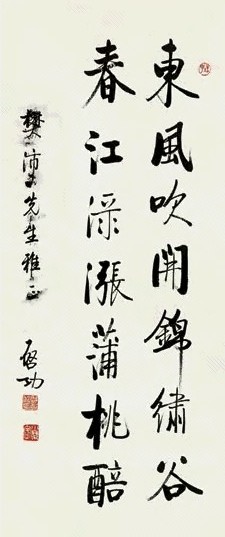 東風吹開錦繡谷
春江渌漲蒲桃醅
樊沛夫先生雅正
啓功